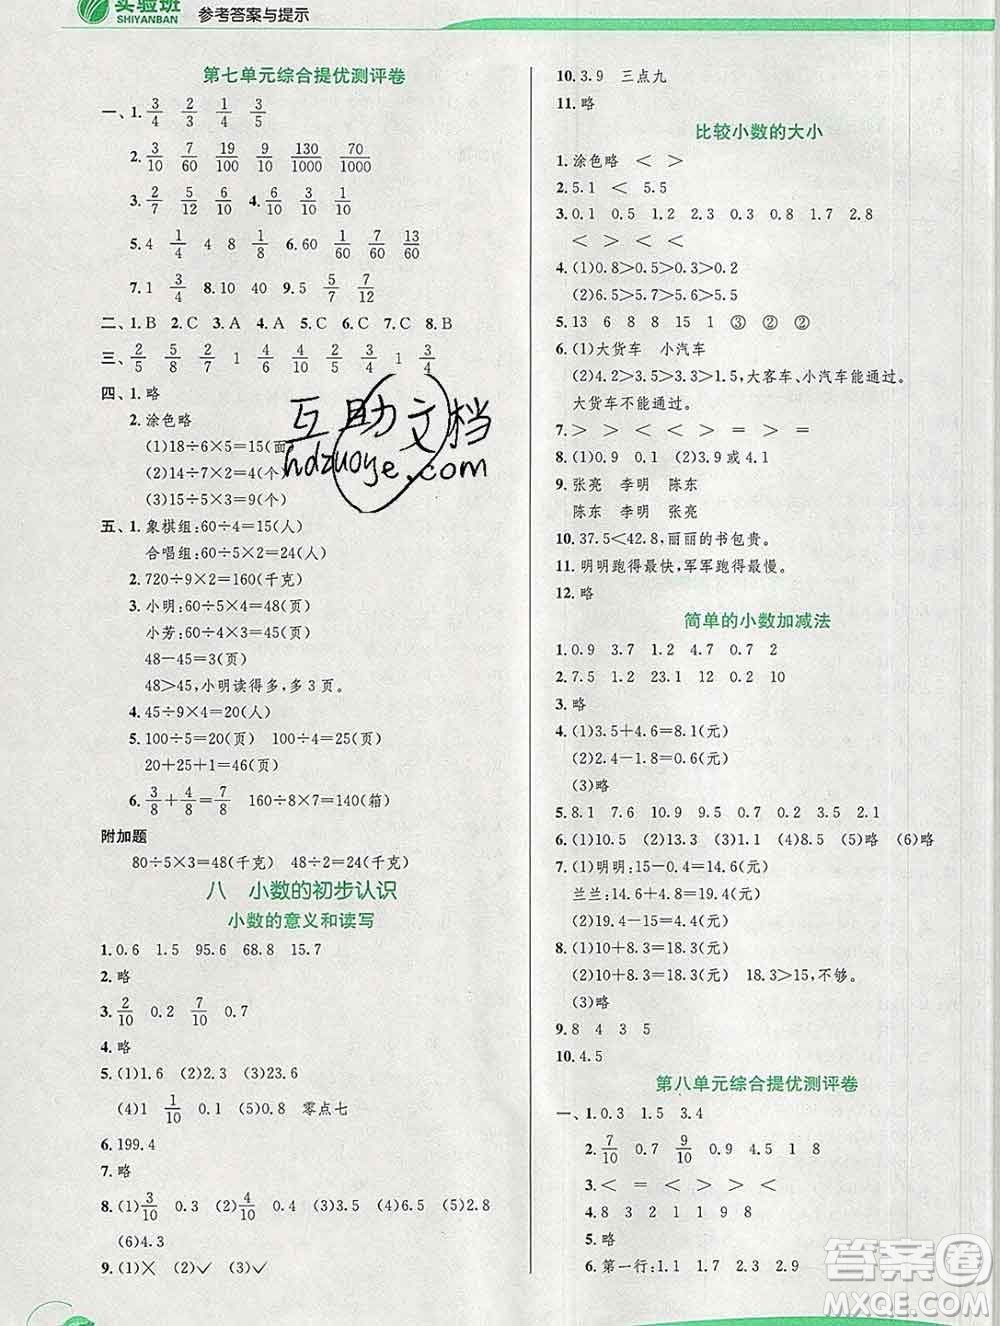 实验班
SHIYANBAN
参考答案与提示
第七单元综合提优测评卷
一、1. 3/4 2/3 1/4 3/5
2. 3/10 7/60 19/100 9/10 130/1000 70/1000
3. 2/7 5/12 6/10 4. 6/10 3/10
5. 4 1/4 4 8 1/8 6. 60 1/60 7/60 13/60
7. 1 3/4 8. 10 40 9. 5 5/7 7/12
二、1. B 2. C 3. A 4. A 5. C 6. B 7. C 8. B
三、2/5 5/8 2/7 1 4/6 2/8 5/5 3/4 1 3/4
四、1. 略
2. 涂色略
(1)18÷6×5=15(面
(2)14÷7×2=4(个
(3)15÷5×3=9(个)
五、1. 象棋组:60÷4=15(人)
合唱组:60÷5×2=24(人)
2. 720÷9×2=160(千克)
3. 小明:60÷5×4=48(页)
小芳:60÷4×3=45(页)
48-45=3(页)
48>45,小明读得多,多3页。
4. 45÷9×4=20(人)
5. 100÷5=20(页) 100÷4=25(页)
20+25+1=46(页)
6. 3/8+4/8=7/8 160÷8×7=140(箱)
附加题
80÷5×3=48(千克) 48÷2=24(千克)
八 小数的初步认识
小数的意义和读写
1. 0.6 1.5 95.6 68.8 15.7
2. 略
3. 2/10 0.2 7/10 0.7
4. 略
5. (1)1.6 (2)2.5 (3)0.6
(4)1 1/10 0.1 (5)0.8 零点七
6. 199.4
7. 略
8. (1)3/10 0.3 (2)4/10 0.4 (3)1.5 (4)6.5 (5)2.8
(6)4.3
9. (1)× (2)✓ (3)✓
10. 3.9 三点九
11. 略
比较小数的大小
1. 涂色略 < >
2. 5.1 < 5.5
3. 0.1 0.5 1.2 2.3 0.3 0.8 1.7 2.8
< > < <
4. (1)0.8>0.5>0.3>0.2
(2)6.5>5.7>5.6>5.5
5. 13 6 8 8 15 1 ③ ② ②
6. (1)大货车 小汽车
(2)4.2>3.5>3.3>1.5,大客车、小汽车能通过。
大货车不能通过。
7. > > < < > = > <
8. (1)0.9 0.1 (2)3.9或4.1
9. 张亮 李明 陈东
陈东 李明 张亮
10. 37.5<42.8,丽丽的书包贵。
11. 明明跑得最快,军军跑得最慢。
12. 略
简单的小数加减法
1. 0.9 3.7 1.2 4.7 0.7 2
2. 7.5 10 23.1 12 0.2 10
3. 略
4. (1)3.5+4.6=8.1(元)
(2)2.4-1.8=0.6(元)
(3)略
5. 8.1 7.6 10.9 9.5 0.7 0.2 3.5 2.1
6. (1)10.5 (2)13.3 (3)1.1 (4)8.5 (5)略 (6)略
7. (1)明明:15-0.4=14.6(元)
兰兰:14.6+4.8=19.4(元)
(2)19.4-15=4.4(元)
8. (1)10+8.3=18.3(元)
(2)10+8.3=18.3(元) 18.3>15,不够。
(3)略
9. 8 4 3 5
10. 4.5
第八单元综合提优测评卷
一、1. 0.3 1.5 3.4
2. 7/10 0.7 9/10 0.9 4.5 1 8
3. < = < > > <
4. 8 3 2 1 1 9 8
5. 略
6. 第一行:1.1 2.3 2.9
互助文档
hdzuoye.com
答案圈
MXQE.COM